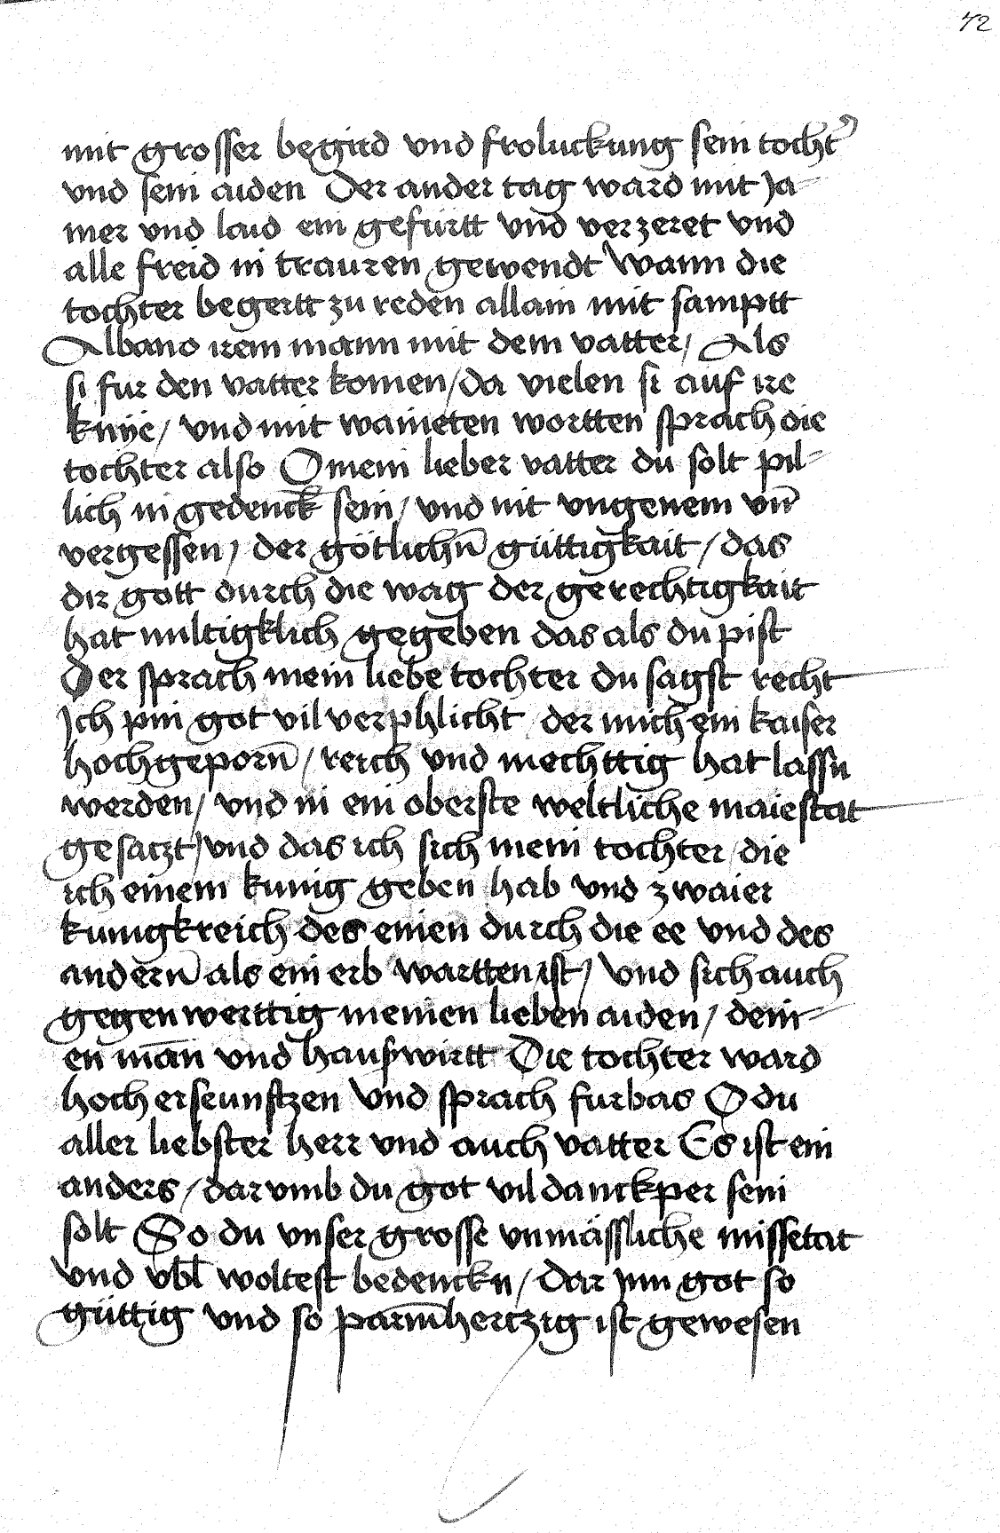 42
mit grosser begird vnd froluckung sein tocht᾿
vnd sein aiden Der ander tag ward mit Ja⸗
mer vnd laid ein gefürtt vnd verzeret vnd
alle freid in trauren gewendt wann die
tochter begertt zu reden allain mit samptt
Albano irem mann mit dem vatter / Als
si fur den vatter komen / da vielen si auf ire
knÿe / vnd mit waineten wortten sprach die
tochter also O mein lieber vatter du solt pil⸗
lich in gedenck sein / vnd nit vngenem vn̄
vergessen / der götlichn̄ güttigkait / das
dir gott durch die wag der gerechtigkait
hat miltigklich gegeben das als du pist
Der sprach mein liebe tochter du sagst recht
Ich pin got vil verphlicht / der mich ein kaiser
hochgeporn̄ / reich vnd mechttig hat lassn
werden / vnd in ein oberste weltliche maiestat
gesatzt / vnd das ich sich mein tochter / die
ich einem kunig geben hab vnd zwaier
kunigkreich des einen durch die ee vnd des
andern̄ als ein erb wartten ist / vnd sich auch
gegenwerttig meinen lieben aiden / dein⸗
en man̄ vnd hauswirtt Die tochter ward
hoch erseunftzen vnd sprach furbas O du
aller liebster herr vnd auch vatter Es ist ein
anders / darvmb du got vil danckper sein
solt So du vnser grosse vnmässliche missetat
vnd vbl̄ woltest bedenckn / dar Inn got so
güttig vnd so parm̄hertzig ist gewesen